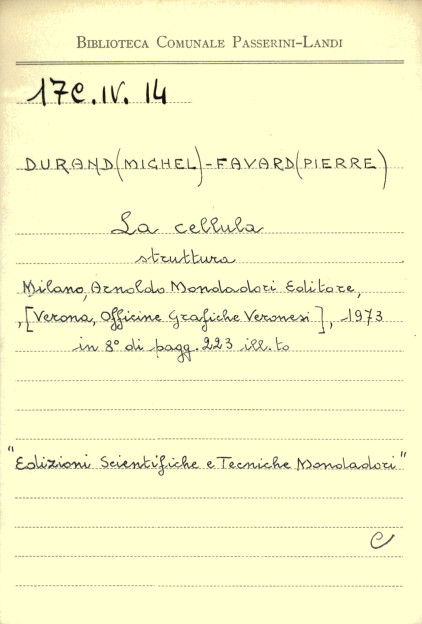 BIBLIOTECA COMUNALE PASSERINI-LANDI
17C.IV.14
DURAND(MICHEL)-FAVARD(PIERRE)
La cellula
struttura
Milano, Arnoldo Mondadori Editore,
,[Verona, Officine Grafiche Veronesi], 1973
in 8° di pagg. 223 ill.to
"Edizioni Scientifiche e Tecniche Mondadori"
C